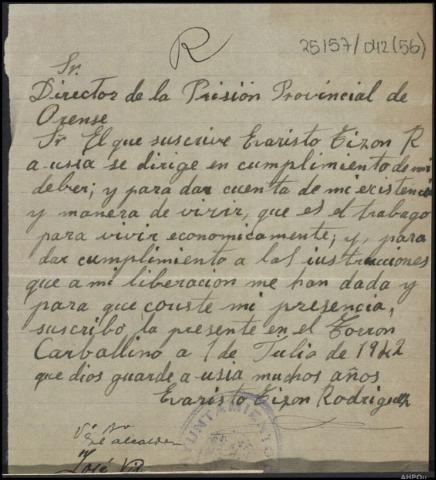 R
25157/042(56)
Sr.
Director de la Prisión Provincial de
Orense
Sr El que suscrive Evaristo Tizon R
a usia se dirige en cumplimiento de mi
deber; y para dar cuenta de mi existencia
y manera de vivir, que es el trabago
para vivir economicamente; y, para
dar cumplimiento a las instrucciones
que a mi liberacion me han dada y
para que conste mi presencia,
suscribo la presente en el Torron
Carballino a 1 de Julio de 1942
que dios guarde a usia muchos años
Evaristo Tizon Rodriguez
AYUNTAMIENTO
Vº Bº
El alcalde
José
AHPOu